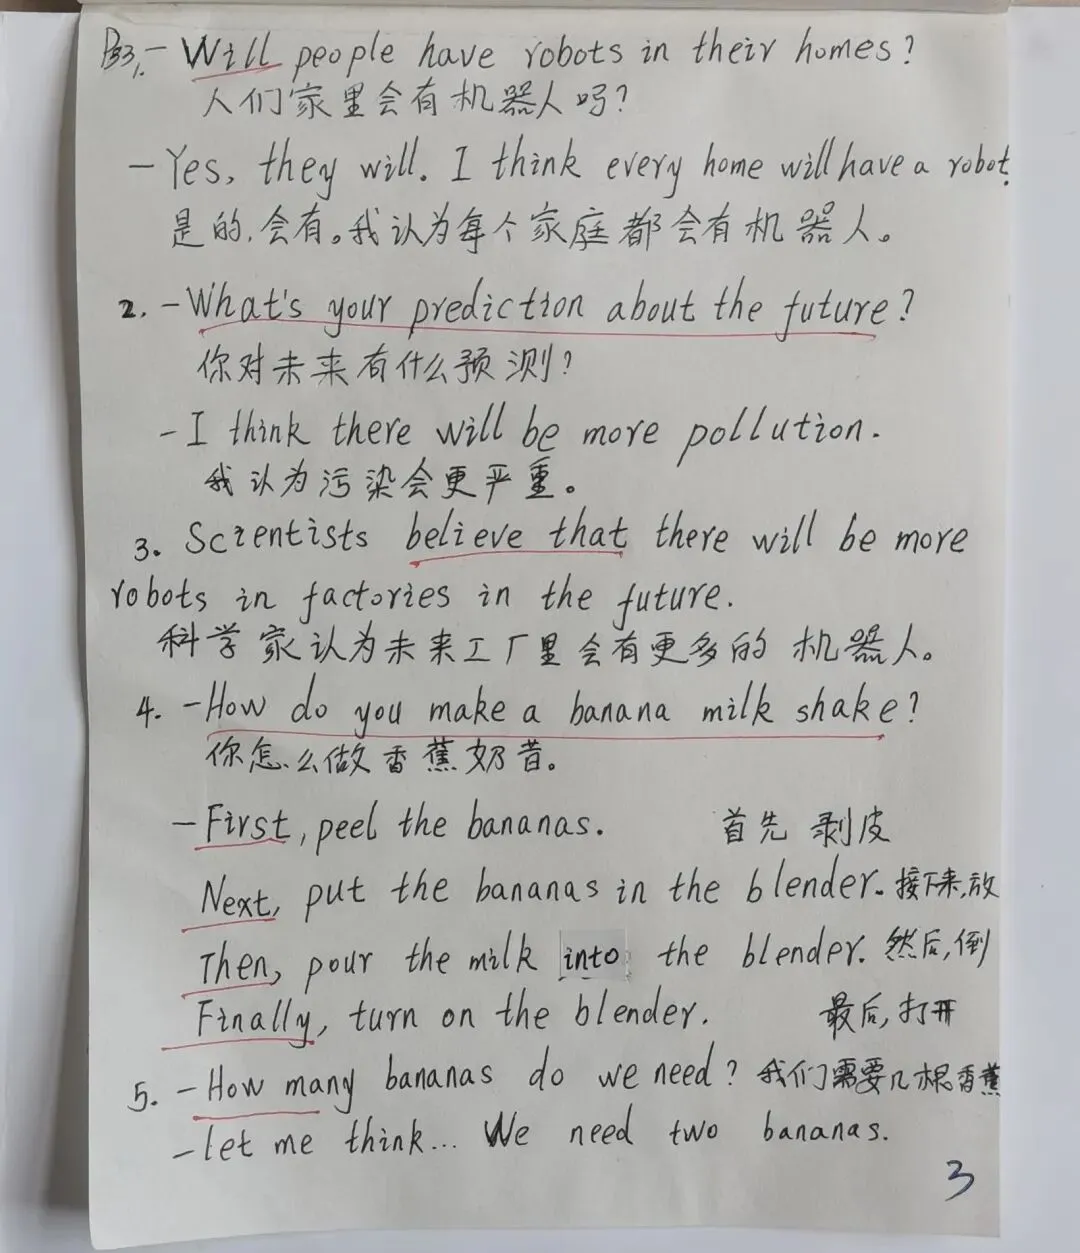 P33, 1. - Will people have robots in their homes?
人们家里会有机器人吗?
- Yes, they will. I think every home will have a robot.
是的,会有。我认为每个家庭都会有机器人。
2. - What's your prediction about the future?
你对未来有什么预测?
- I think there will be more pollution.
我认为污染会更严重。
3. Scientists believe that there will be more
robots in factories in the future.
科学家认为未来工厂里会有更多的机器人。
4. - How do you make a banana milk shake?
你怎么做香蕉奶昔。
- First, peel the bananas. 首先 剥皮
Next, put the bananas in the blender. 接下来,放
Then, pour the milk into the blender. 然后,倒
Finally, turn on the blender. 最后,打开
5. - How many bananas do we need? 我们需要几根香蕉
- let me think... We need two bananas.
3